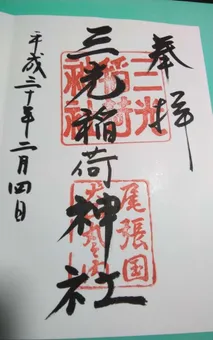 奉拝
三光稲荷神社
三光稲荷神社
尾張国
平成三十年二月四日